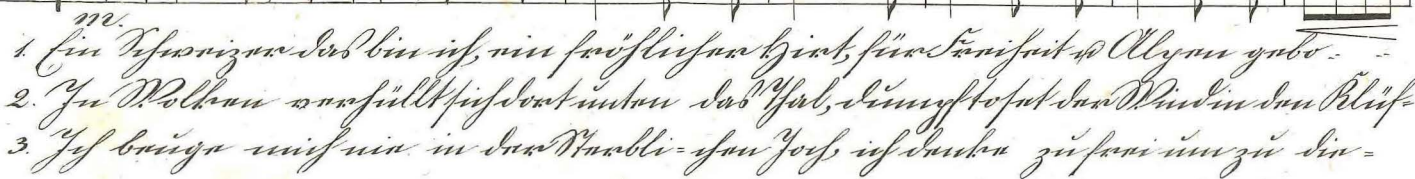 m.
1. Ein Schweizer das bin ich, ein fröhlicher Hirt, für Freiheit u Alpen gebo- -
2. In Wolken verhüllt sich dort unten das Thal, dumpf toset der Wind in den Klüf=
3. Ich beuge mich nie in der Sterbli=chen Joch, ich denke zu frei um zu die=